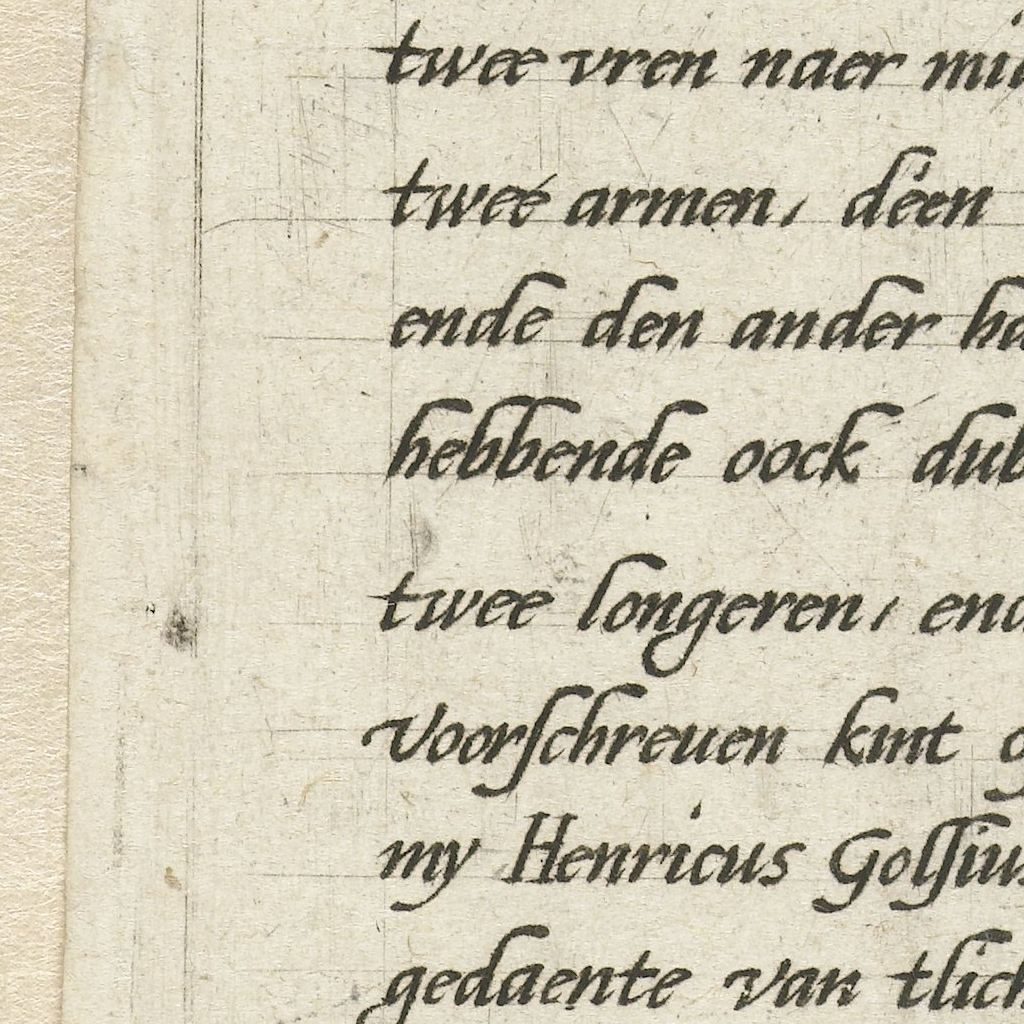 twee vren naer mid
tweé armen, déen
ende den ander ha
hebbende oock dub
twee longeren, end
Voorſchreuen kint g
my Henricus Golſius
gedaente van tlich